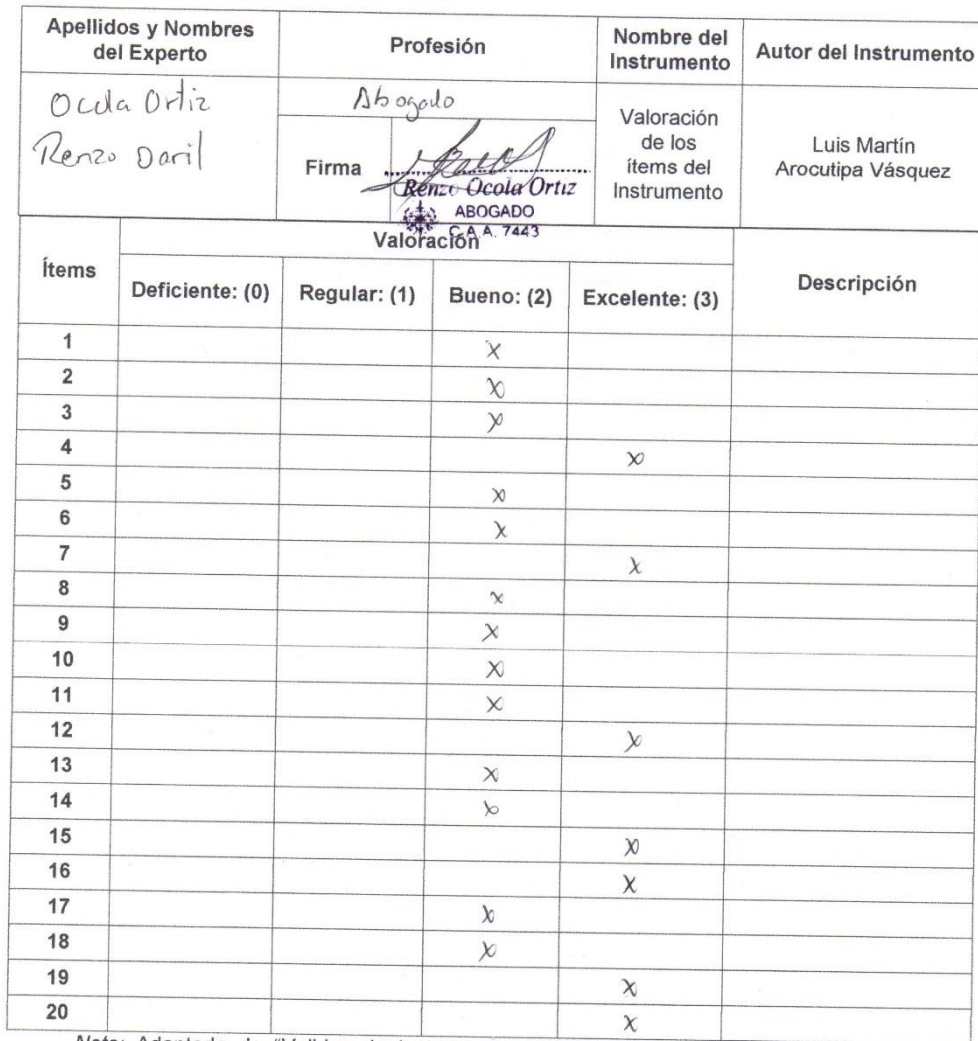 Apellidos y Nombres
del Experto
Profesión
Nombre del
Instrumento
Autor del Instrumento
Ocola Ortiz
Renzo Daril
Abogado
Firma
Renzo Ocola Ortiz
ABOGADO
C.A.A. 7443
Valoración
de los
ítems del
Instrumento
Luis Martín
Arocutipa Vásquez
Ítems
Valoración
Descripción
Deficiente: (0) Regular: (1) Bueno: (2) Excelente: (3)
1 X
2 X
3 X
4 X
5 X
6 X
7 X
8 X
9 X
10 X
11 X
12 X
13 X
14 X
15 X
16 X
17 X
18 X
19 X
20 X